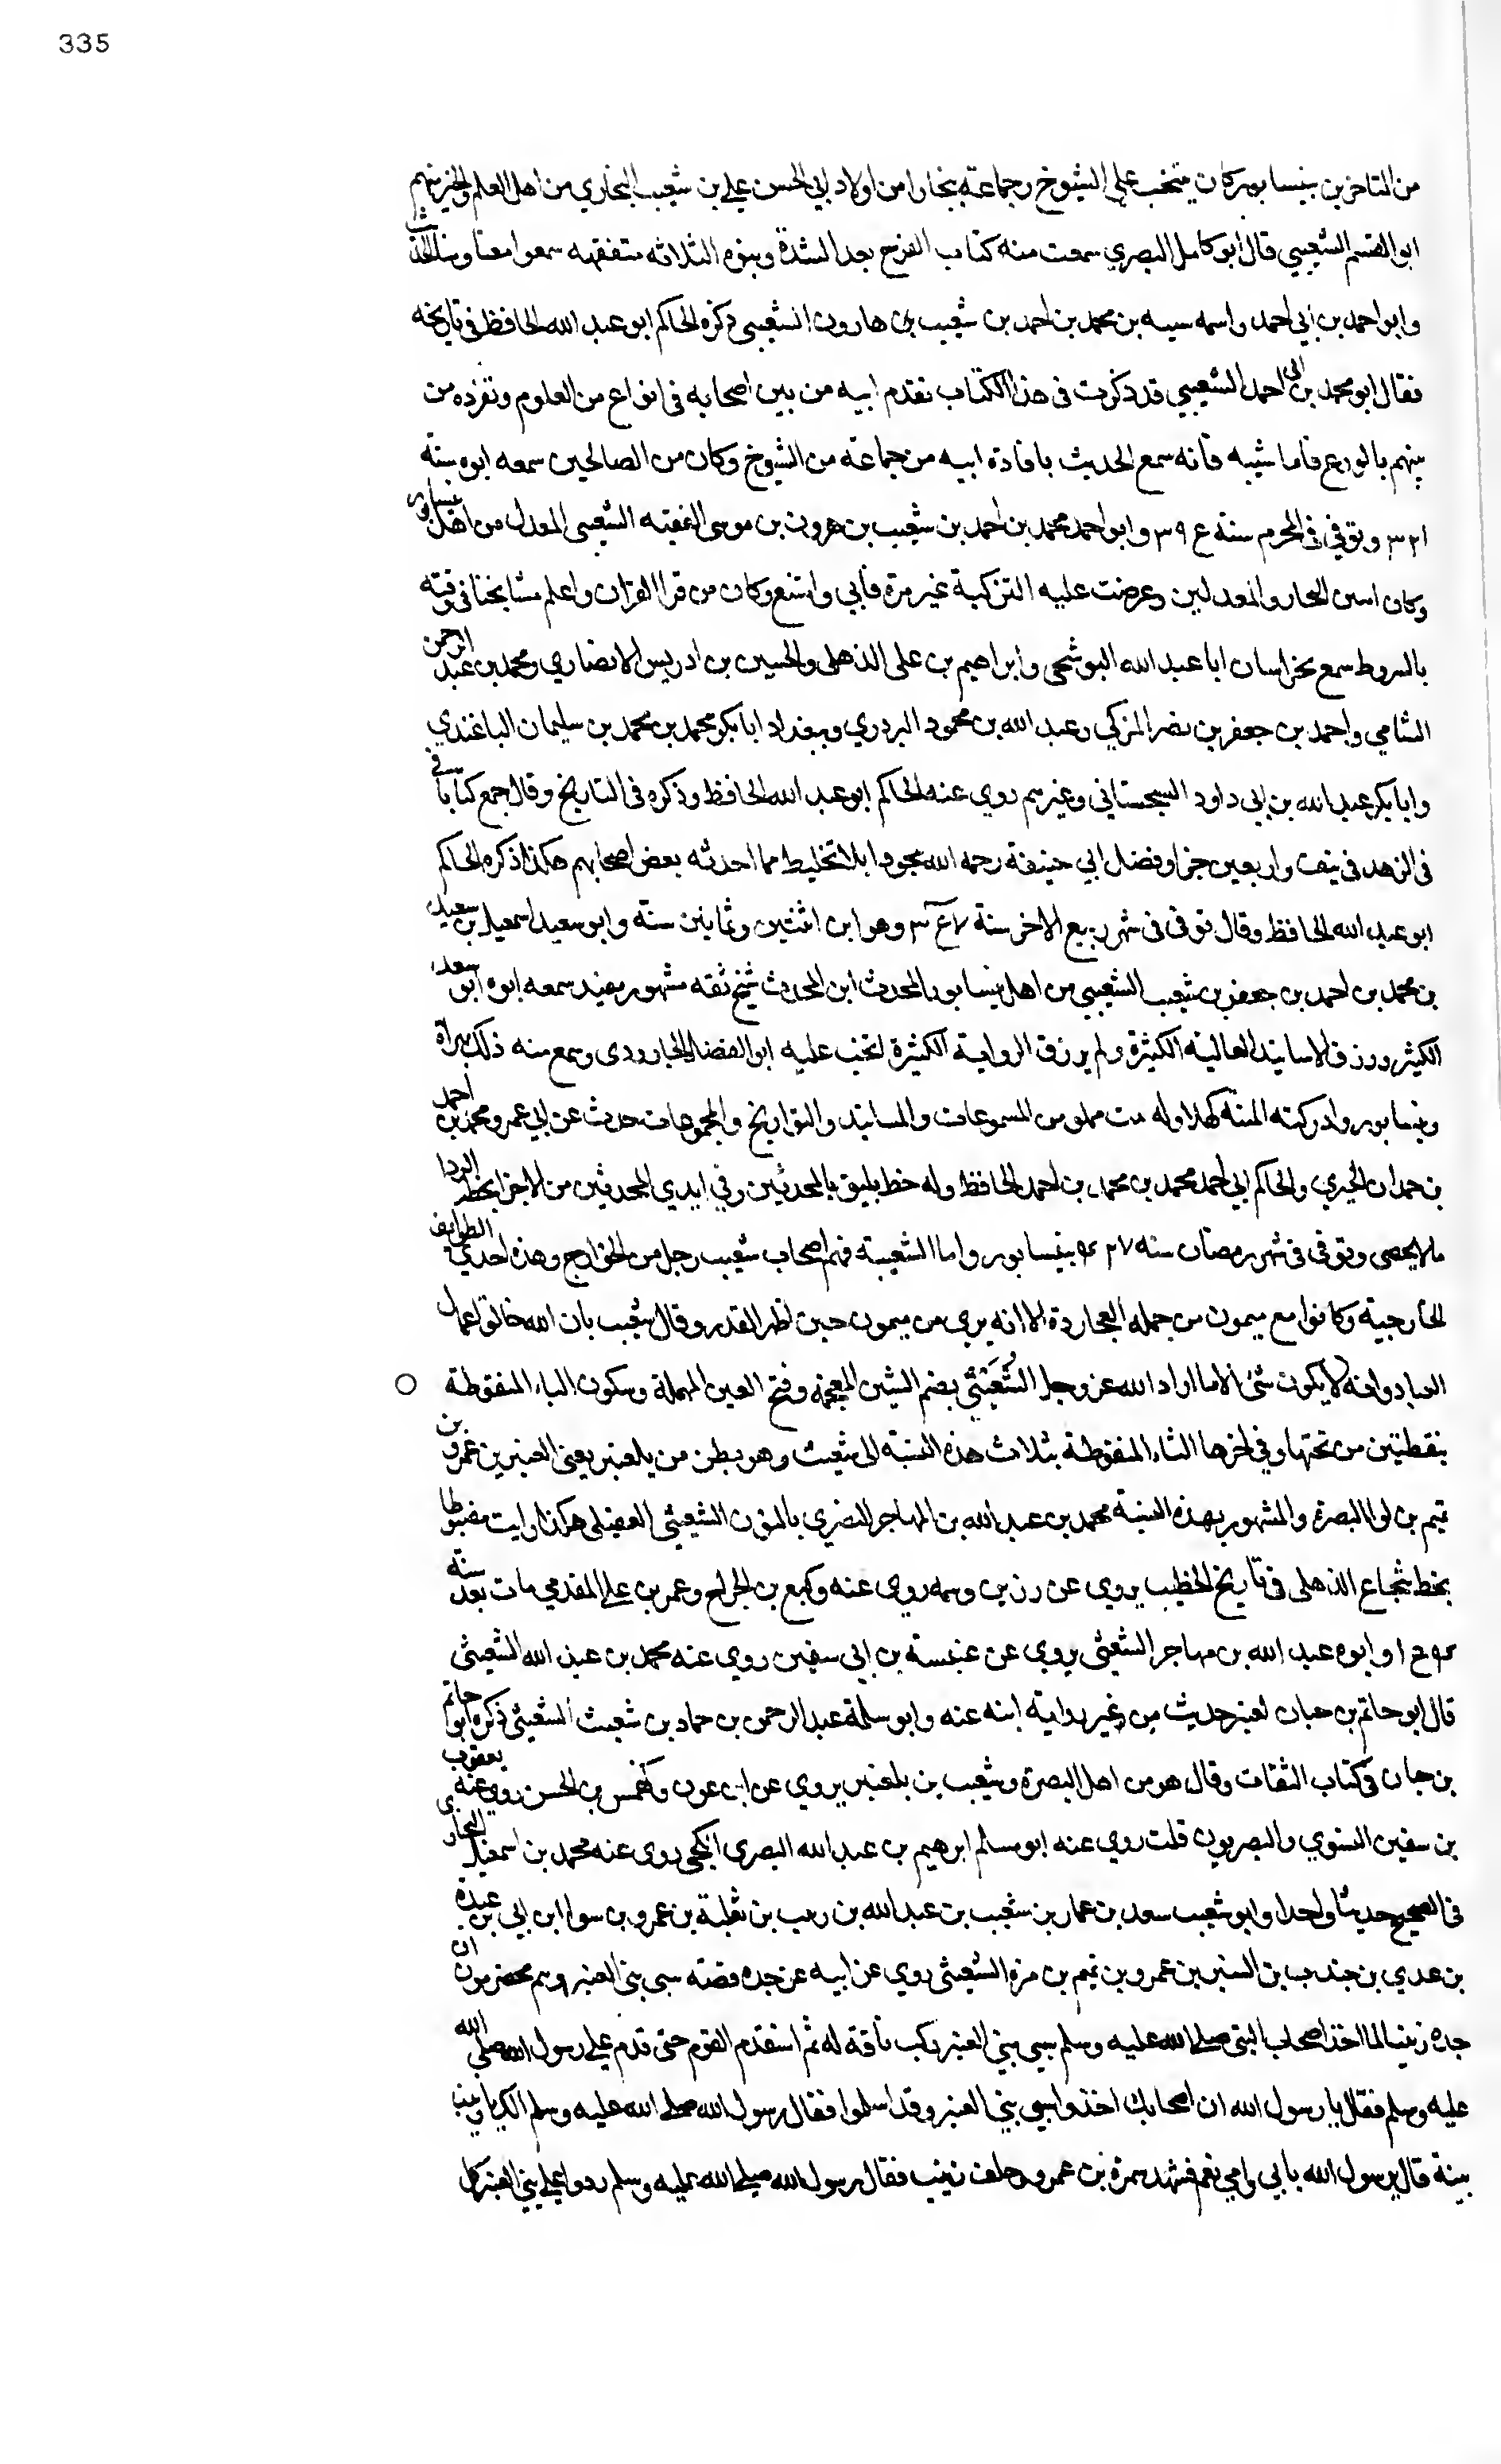 335
من المتاخرين بنيسابور كان ينتخب على الشيوخ وجماعة ببخارا من اولاد ابي الحسن علي بن شعيب البخاري من اهل العلم والخير منهم
ابو القسم الشعيبي قال ابو كامل البصري سمعت منه كتاب الفرج بعد الشدة وبنوه الثلاثه متفقهه سمعوا معنا ومنا الحديث
وابو احمد بن ابي احمد واسمه سيبه بن محمد بن احمد بن شعيب بن هارون الشعيبي ذكره الحاكم ابو عبد الله الحافظ في تاريخه
فقال ابو محمد بن ابي احمد الشعيبي قد ذكرت في هذا الكتاب تقدم ابيه من بين اصحابه في انواع من العلوم وتفرده من
بينهم بالورع فاما شيبه فانه سمع الحديث بافادة ابيه من جماعة من الشيوخ وكان من الصالحين سمعه ابوه سنة
٣٢١ وتوفي في المحرم سنة ٣٩٤ وابو احمد محمد بن احمد بن شعيب بن هرون بن موسى الفقيه الشعيبي المعدل من اهل نيسابور
وكان اسن التجار والمعدلين وعرضت عليه التزكية غير مرة فابى وامتنع وكان من قرا القران واعلم مشايخنا في وقته
بالشروط سمع بخراسان ابا عبد الله البوشنجي وابراهيم بن علي الذهلي والحسين بن ادريس الانصاري ومحمد بن عبد الرحمن
الشامي واحمد بن جعفر بن نصر المزكي وعبد الله بن محمود البردري وببغداد ابا بكر محمد بن محمد بن سليمان الباغندي
وابا بكر عبد الله بن ابي داود السجستاني وغيرهم روي عنه الحاكم ابو عبد الله الحافظ وذكره في التاريخ وقال جمع كتابا في
في الزهد في نيف واربعين جزا وفضل ابي حنيفة رحمه الله مجودا بلا تخليط مما احدثه بعض اصحابهم هكذا ذكره الحاكم
ابو عبد الله الحافظ وقال توفي في شهر ربيع الاخر سنة وهو ابن اثنتين وثمانين سنة وابو سعيد اسمعيل بن سعيد
بن محمد بن احمد بن جعفر بن شعيب الشعيبي من اهل نيسابور المحدث ابن المحدث شيخ ثقه مشهور مفيد سمعه ابوه ابو سعد
الكثير ورزق الاسانيد العالية الكثيرة ولم يرزق الرواية الكثيرة انتخب عليه ابو الفضل الجارودي وسمع منه ذلك بهراة
ونيسابور وادركته المنية كهلا وله بيت مملو من المسموعات والمسانيد والتواريخ والمجموعات حدث عن ابي عمرو محمد بن احمد
بن حمدان الحيري والحاكم ابي احمد محمد بن محمد بن احمد الحافظ وله خط يليق بالمحدثين وفي ايدي المحدثين من الاجزا بخطه
ما لا يحصى وتوفي في شهر رمضان سنه ٤٢٧ بنيسابور واما الشعيبية فهم اصحاب شعيب رجل من الخوارج وهذه احدي الطوايف
الخارجية وكانوا مع ميمون من جمله العجاردة الا انه بري من ميمون حين اظهر القدر وقال شعيب بان الله خالق اعمال
العباد وانه لا يكون شئ الا ما اراد الله عز وجل الشُّعَيْثِي بضم الشين المعجمة وفتح العين المهملة وسكون الياء المنقوطة
بنقطتين من تحتها وفي اخرها الثاء المنقوطة بثلاث هذه النسبة الى شعيث وهو بطن من بلعنبر يعني العنبر بن عمرو بن
تميم بن لوا البصرة والمشهور بهذه النسبة محمد بن عبد الله بن المهاجر النصري بالنون الشعيثي العقيلي هكذا رايت مضبوطا
بخط شجاع الذهلي في تاريخ الخطيب يروي عن روى عنه وكيع بن الجراح وعمر بن علي المقدمي مات بعد سنة
وابوه عبد الله بن مهاجر الشعيثي يروي عن عنبسة بن ابي سفين روي عنه محمد بن عبد الله الشعيثي
قال ابو حاتم بن حبان يعتبر حديثه من غير رواية ابنه عنه وابو سلمة عبد الرحمن بن حماد بن شعيث الشعيثي ذكره ابو حاتم
بن حبان في كتاب الثقات وقال هو من اهل البصرة وشعيب بن بلعنبر يروي عن ابن عون وكهمس بن الحسن روي عنه يعقوب
بن سفين النسوي والبصريون قلت روي عنه ابو مسلم ابرهيم بن عبد الله البصري الكجي روى عنه محمد بن اسمعيل البخاري
في الصحيح حديثا واحدا وابو شعيب سعد بن عمار بن شعيب بن عبد الله بن زبيب بن ثعلبة بن عمرو بن سوا ابن ابي بن عبدة
بن عدي بن جندب بن العنبر بن عمرو بن تميم بن مرة الشعيثي روي عن ابيه عن جده قصته سبي بني العنبر وهم مخضرمون ان
جده زبيبا لما اخذ اصحاب النبي صلى الله عليه وسلم سبي بني العنبر ركب ناقة له ثم استقدم القوم حتى قدم علي رسول الله صلى الله
عليه وسلم فقال يا رسول الله ان اصحابك اخذوا سبي بني العنبر وقد اسلموا فقال رسول الله صلى الله عليه وسلم الك يا زبيب
بينة قال يرسول الله بابي وامي نعم فشهد سمرة بن عمرو وحلف زبيب فقال رسول الله صلى الله عليه وسلم ردوا علي بني العنبر كل